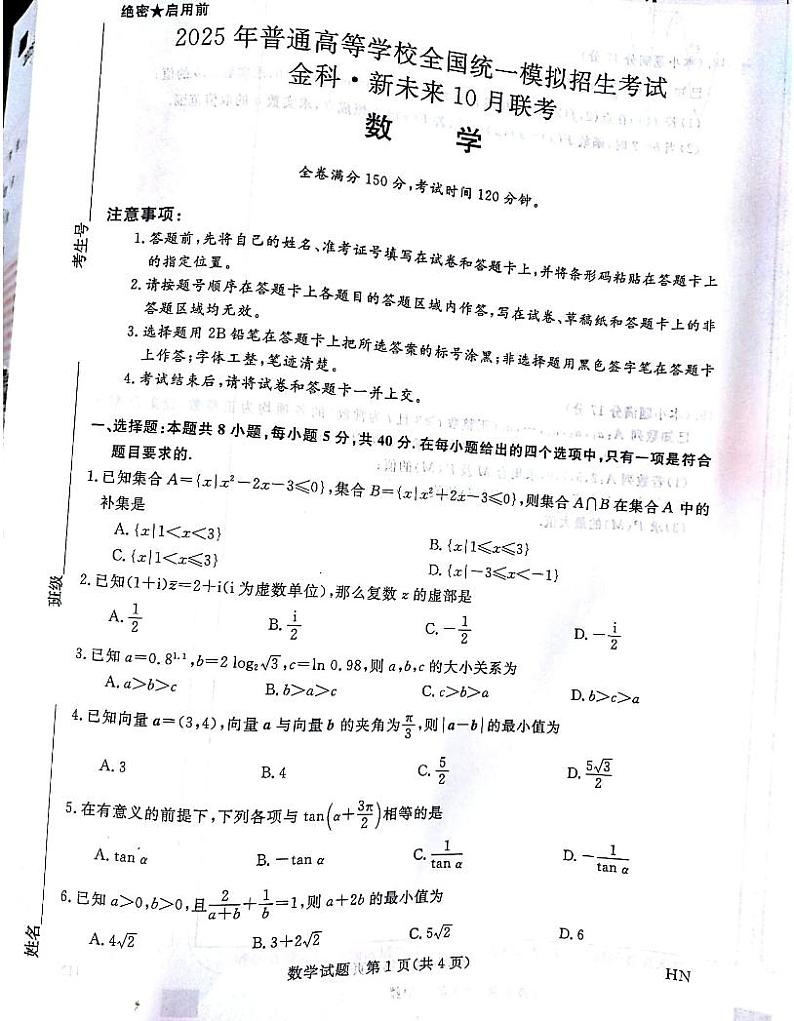 绝密★启用前
2025年普通高等学校全国统一模拟招生考试
金科·新未来10月联考
数 学
全卷满分150分,考试时间120分钟。
注意事项:
1.答题前,先将自己的姓名、准考证号填写在试卷和答题卡上,并将条形码粘贴在答题卡上
的指定位置。
2.请按题号顺序在答题卡上各题目的答题区域内作答,写在试卷、草稿纸和答题卡上的非
答题区域均无效。
3.选择题用2B铅笔在答题卡上把所选答案的标号涂黑;非选择题用黑色签字笔在答题卡
上作答;字体工整,笔迹清楚。
4.考试结束后,请将试卷和答题卡一并上交。
一、选择题:本题共8小题,每小题5分,共40分.在每小题给出的四个选项中,只有一项是符合
题目要求的.
1.已知集合A={x|x²-2x-3≤0},集合B={x|x²+2x-3≤0},则集合A∩B在集合A中的
补集是
A.{x|1<x<3}
B.{x|1≤x≤3}
C.{x|1<x≤3}
D.{x|-3≤x<-1}
2.已知(1+i)z̅=2+i(i为虚数单位),那么复数z的虚部是
A.1/2
B.i/2
C.-1/2
D.-i/2
3.已知a=0.8¹·¹,b=2log₂√3,c=ln 0.98,则a,b,c的大小关系为
A.a>b>c
B.b>a>c
C.c>b>a
D.b>c>a
4.已知向量a=(3,4),向量a与向量b的夹角为π/3,则|a-b|的最小值为
A.3
B.4
C.5/2
D.5√3/2
5.在有意义的前提下,下列各项与tan(α+3π/2)相等的是
A.tan α
B.-tan α
C.1/tan α
D.-1/tan α
6.已知a>0,b>0,且2/(a+b)+1/b=1,则a+2b的最小值为
A.4√2
B.3+2√2
C.5√2
D.6
数学试题 第1页(共4页)
HN
考生号
班级
姓名